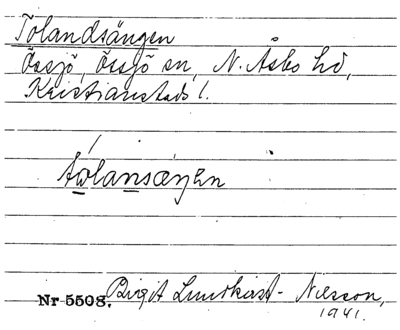 Tolandsängen
Össjö, Össjö sn, N. Åsbo hd,
Kristianstads l.
tωlansæŋen
Nr 5508. Birgit Lundkvist-Nilsson,
1941.